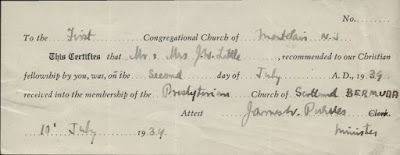 No.
To the First Congregational Church of Montclair N.J.
This Certifies that Mr. & Mrs. J. W. Little, recommended to our Christian
fellowship by you, was, on the Second day of July A. D., 1939
received into the membership of the Presbyterian Church of Scotland BERMUDA
Attest James W. Clerk.
10th July 1939. Minister